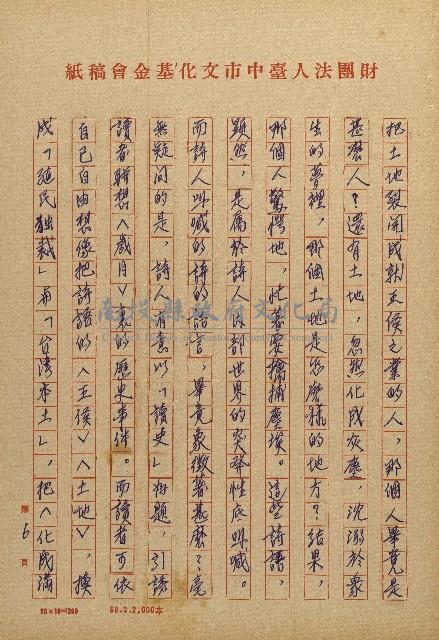 財團法人臺中市文化基金會稿紙
把土地裂開成就王侯之業的人，那個人畢竟是
甚麼人？還有土地，忽然化成灰塵，沈溺於眾
生的夢裡，那個土地是怎麼樣的地方？結果，
那個人驚愕地，忙著要擒捕塵埃。這些詩語，
顯然，是屬於詩人內部世界的突發性底叫喊。
而詩人叫喊的詩的語言，畢竟象徵著甚麼？毫
無疑問的是，詩人有意以「讀史」為題，引誘
讀者聯想〈歲月〉裏的歷史事件。而讀者可依
自己自由想像把詩語的〈王侯〉〈土地〉，換
成「殖民獨裁」而「台灣本土」，把〈化成滿
第6頁
20×10=200
68.3.2,000本
南投縣政府文化局